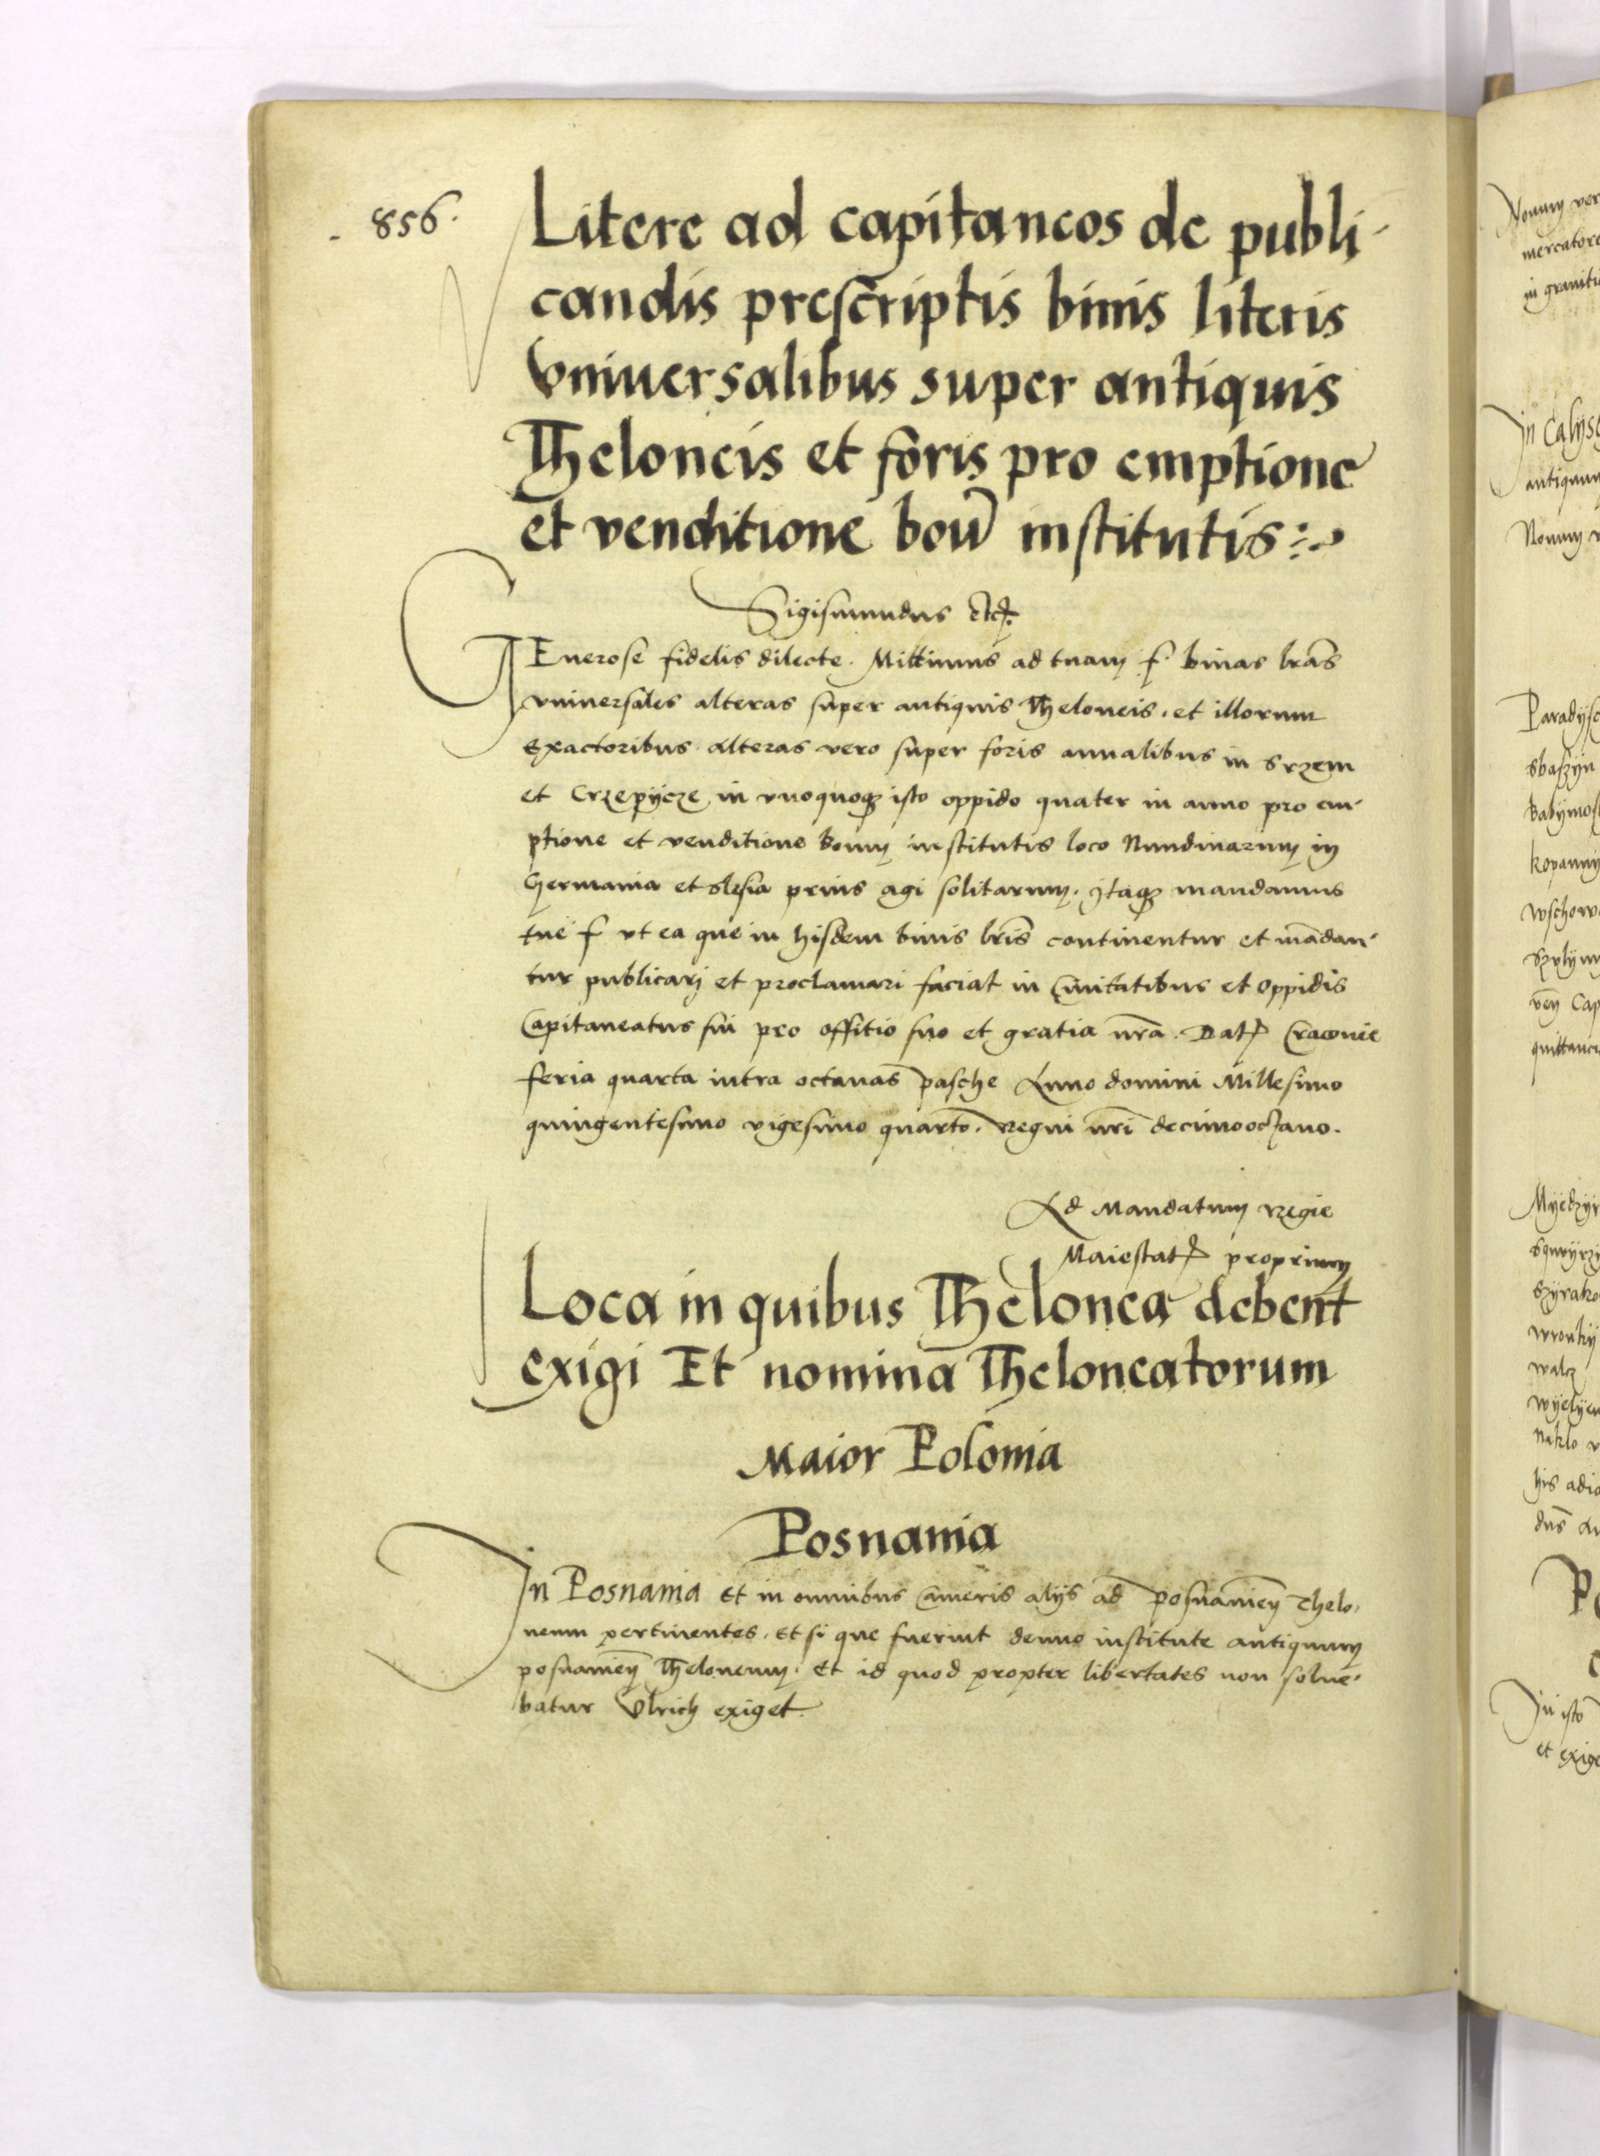 856.
Litere ad capitaneos de publi-
candis prescriptis binis literis
vniuersalibus super antiquis
Theloneis et foris pro emptione
et venditione boū institutis
Sigismundus etc.
GEnerose fidelis dilecte. Mittimus ad tuam f. binas lrās
vniuersales alteras super antiquis Theloneis. et illorum
exactoribus alteras vero super foris annalibus in Srzem
et Crzepycze in vnoquoqz isto oppido quater in anno pro em-
ptione et venditione boum institutis loco Nundinarum in
Germania et slesia prius agi solitarum. Itaqz mandamus
tue f. vt ea que in hisdem binis lris continentur et mādan-
tur publicari et proclamari faciat in Ciuitatibus et oppidis
Capitaneatus sui pro offitio suo et gratia nrā. Dat Cracouie
feria quarta intra octauas pasche Anno domini Millesimo
quingentesimo vigesimo quarto. Regni nri decimooctauo.
Ad Mandatum Regie
Maiestat proprium
Loca in quibus Thelonea debent
exigi Et nomina Theloneatorum
Maior Polonia
Posnania
In Posnania et in omnibus Cameris alijs ad posnanien Thelo-
neum pertinentes. et si que fuerint denuo institute antiquum
posnanien Theloneum. Et id quod propter libertates non solue-
batur Vlrich exiget.
mercatore
In Calys
antiquum
Paradys
sbaszyn
kopanny
wschow
quittanc
wronky
walcz
Naklo
his adi
In isto
et exige